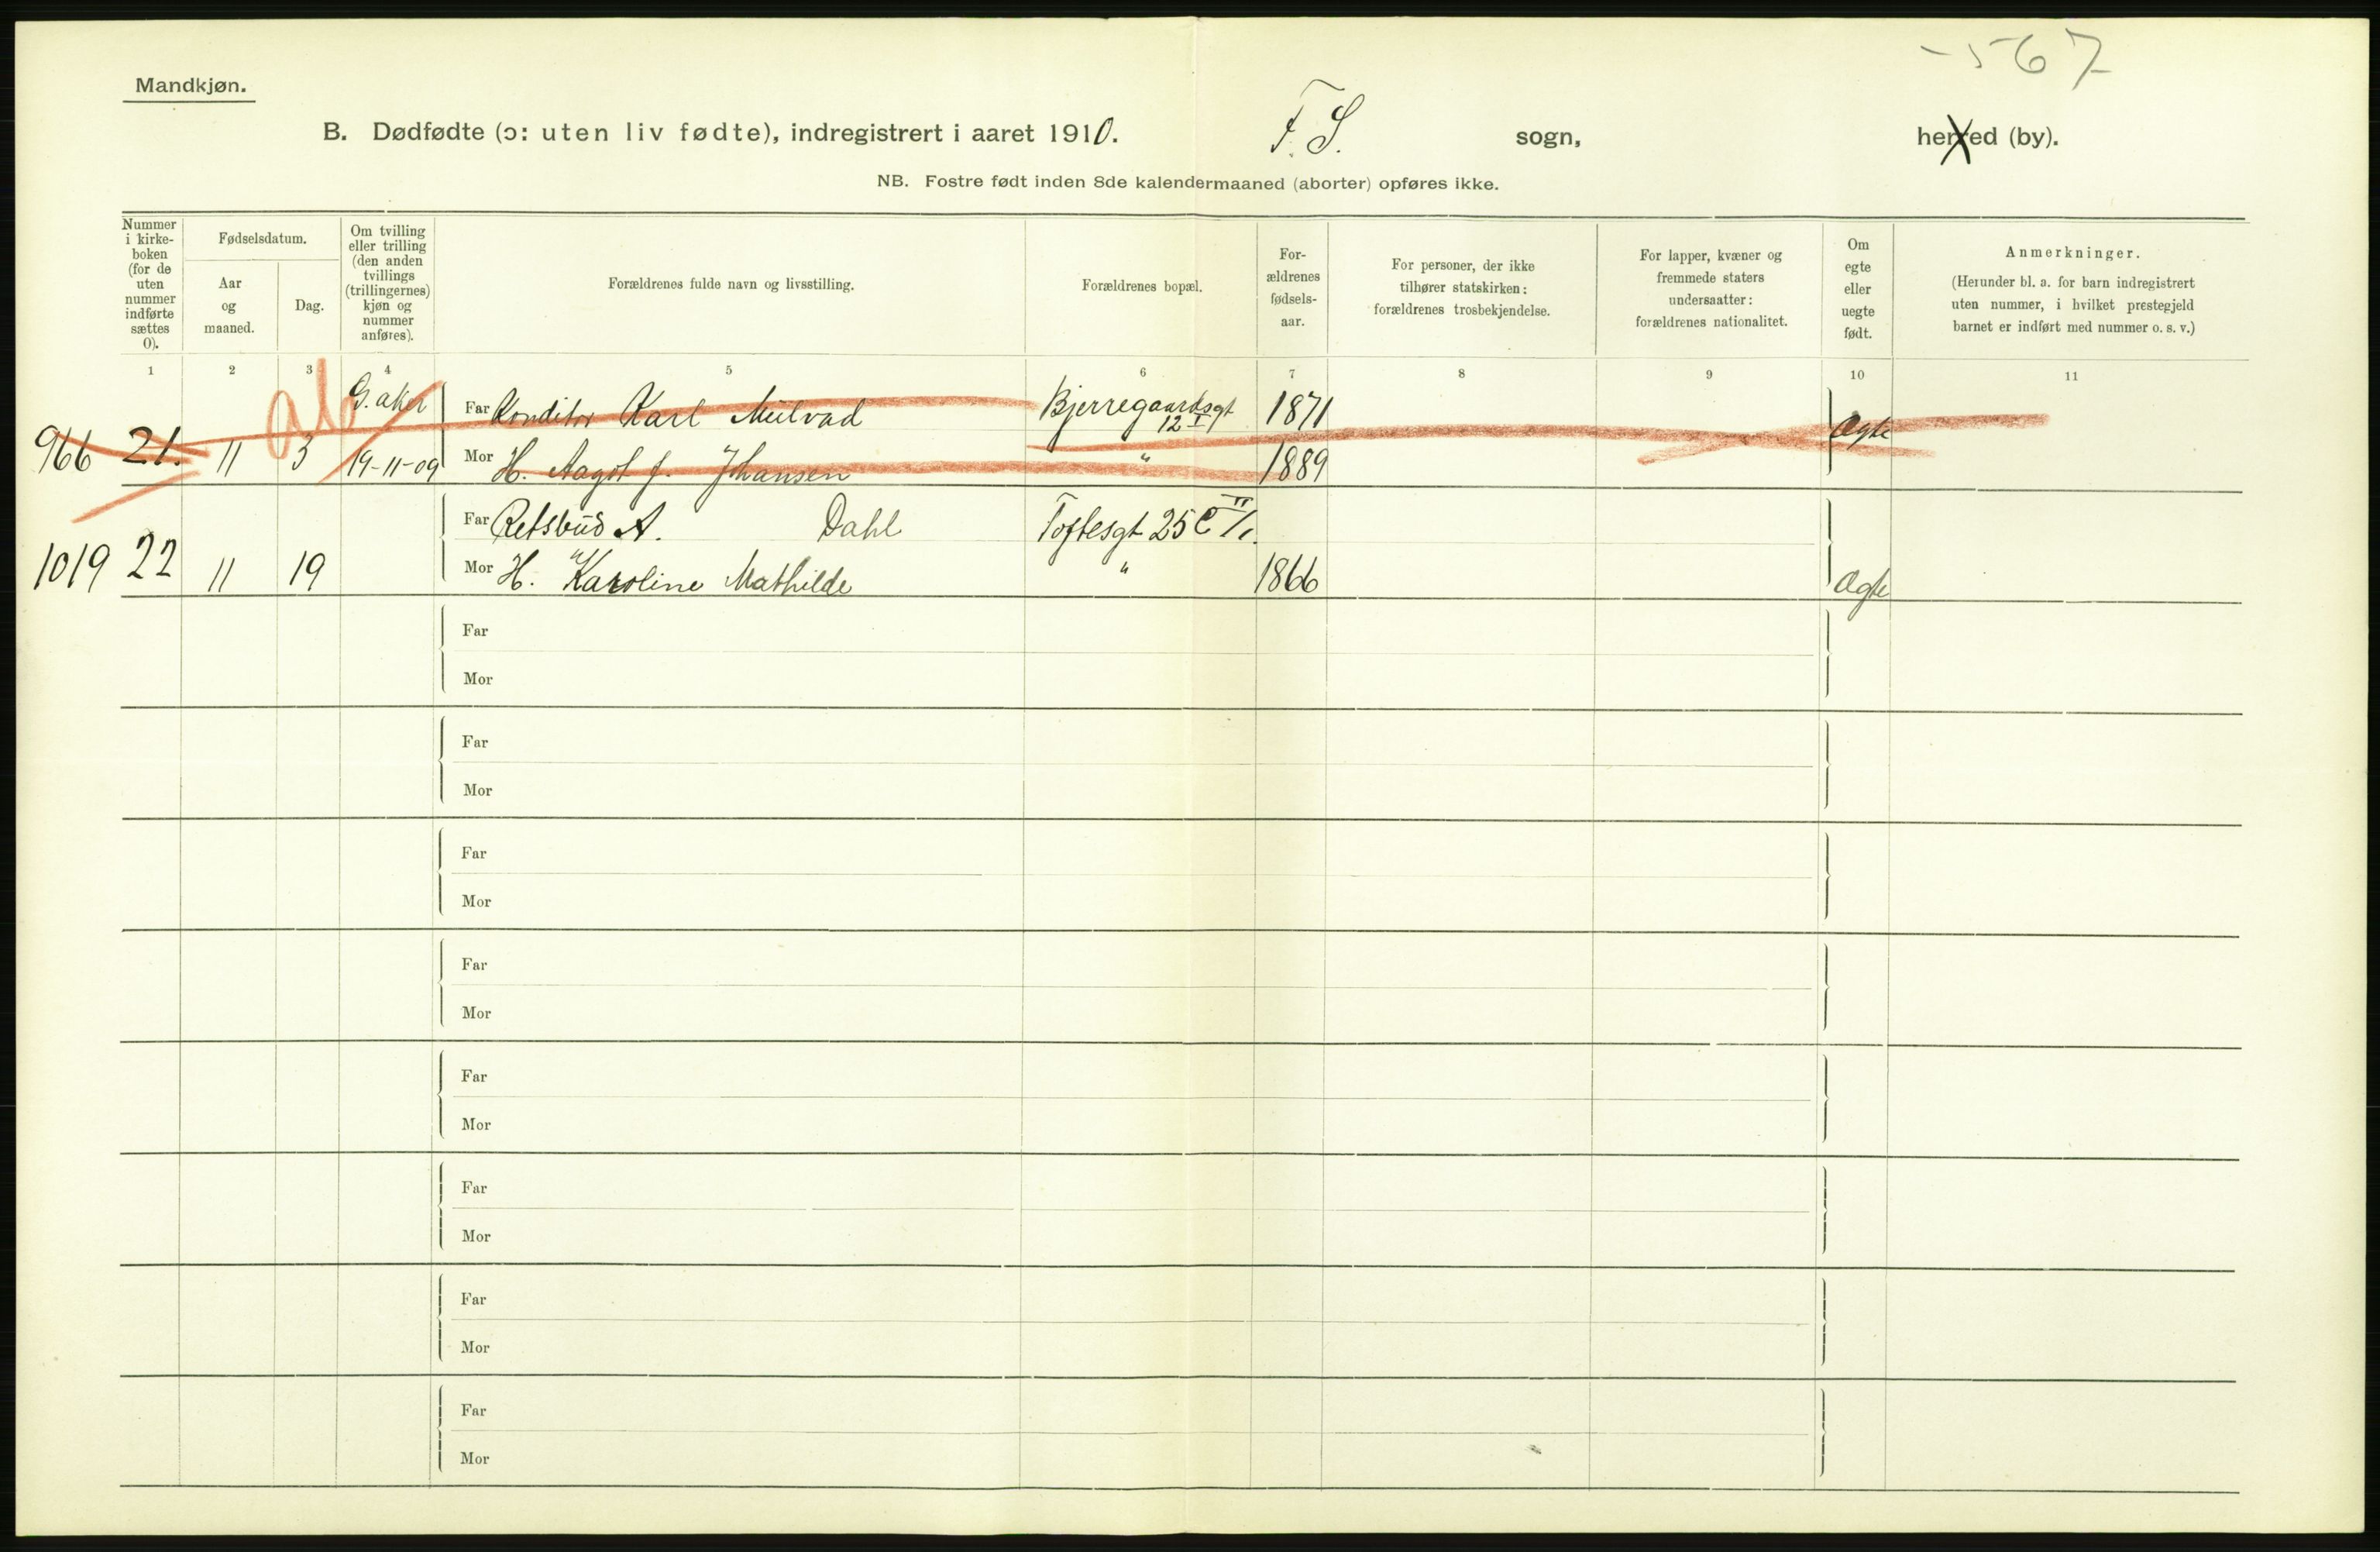 567
Mandkjøn.
B. Dødfødte (ɔ: uten liv fødte), indregistrert i aaret 1910. F. S. sogn, herred (by).
NB. Fostre født inden 8de kalendermaaned (aborter) opføres ikke.
Nummer
i kirke-
boken
(for de
uten
nummer
indførte
sættes
0).
Fødselsdatum.
Aar
og
maaned.
Dag.
Om tvilling
eller trilling
(den anden
tvillings
(trillingernes)
kjøn og
nummer
anføres).
Forældrenes fulde navn og livsstilling.
Forældrenes bopæl.
For-
ældrenes
fødsels-
aar.
For personer, der ikke
tilhører statskirken:
forældrenes trosbekjendelse.
For lapper, kvæner og
fremmede staters
undersaatter:
forældrenes nationalitet.
Om
egte
eller
uegte
født.
Anmerkninger.
(Herunder bl. a. for barn indregistrert
uten nummer, i hvilket prestegjeld
barnet er indført med nummer o. s. v.)
1 2 3 4 5 6 7 8 9 10 11
G. aker Far Konditor Karl Mülvad Bjerregaardsgt 12 I 1871
966 21. 11 3 19-11-09 Mor H. Aagot f. Johansen " 1889 Ægte
ab
Far Retsbud A. Dahl Toftesgt 25 C II/I.
1019 22 11 19 Mor H. Karoline Mathilde " 1866 Ægte
Far
Mor
Far
Mor
Far
Mor
Far
Mor
Far
Mor
Far
Mor
Far
Mor
Far
Mor